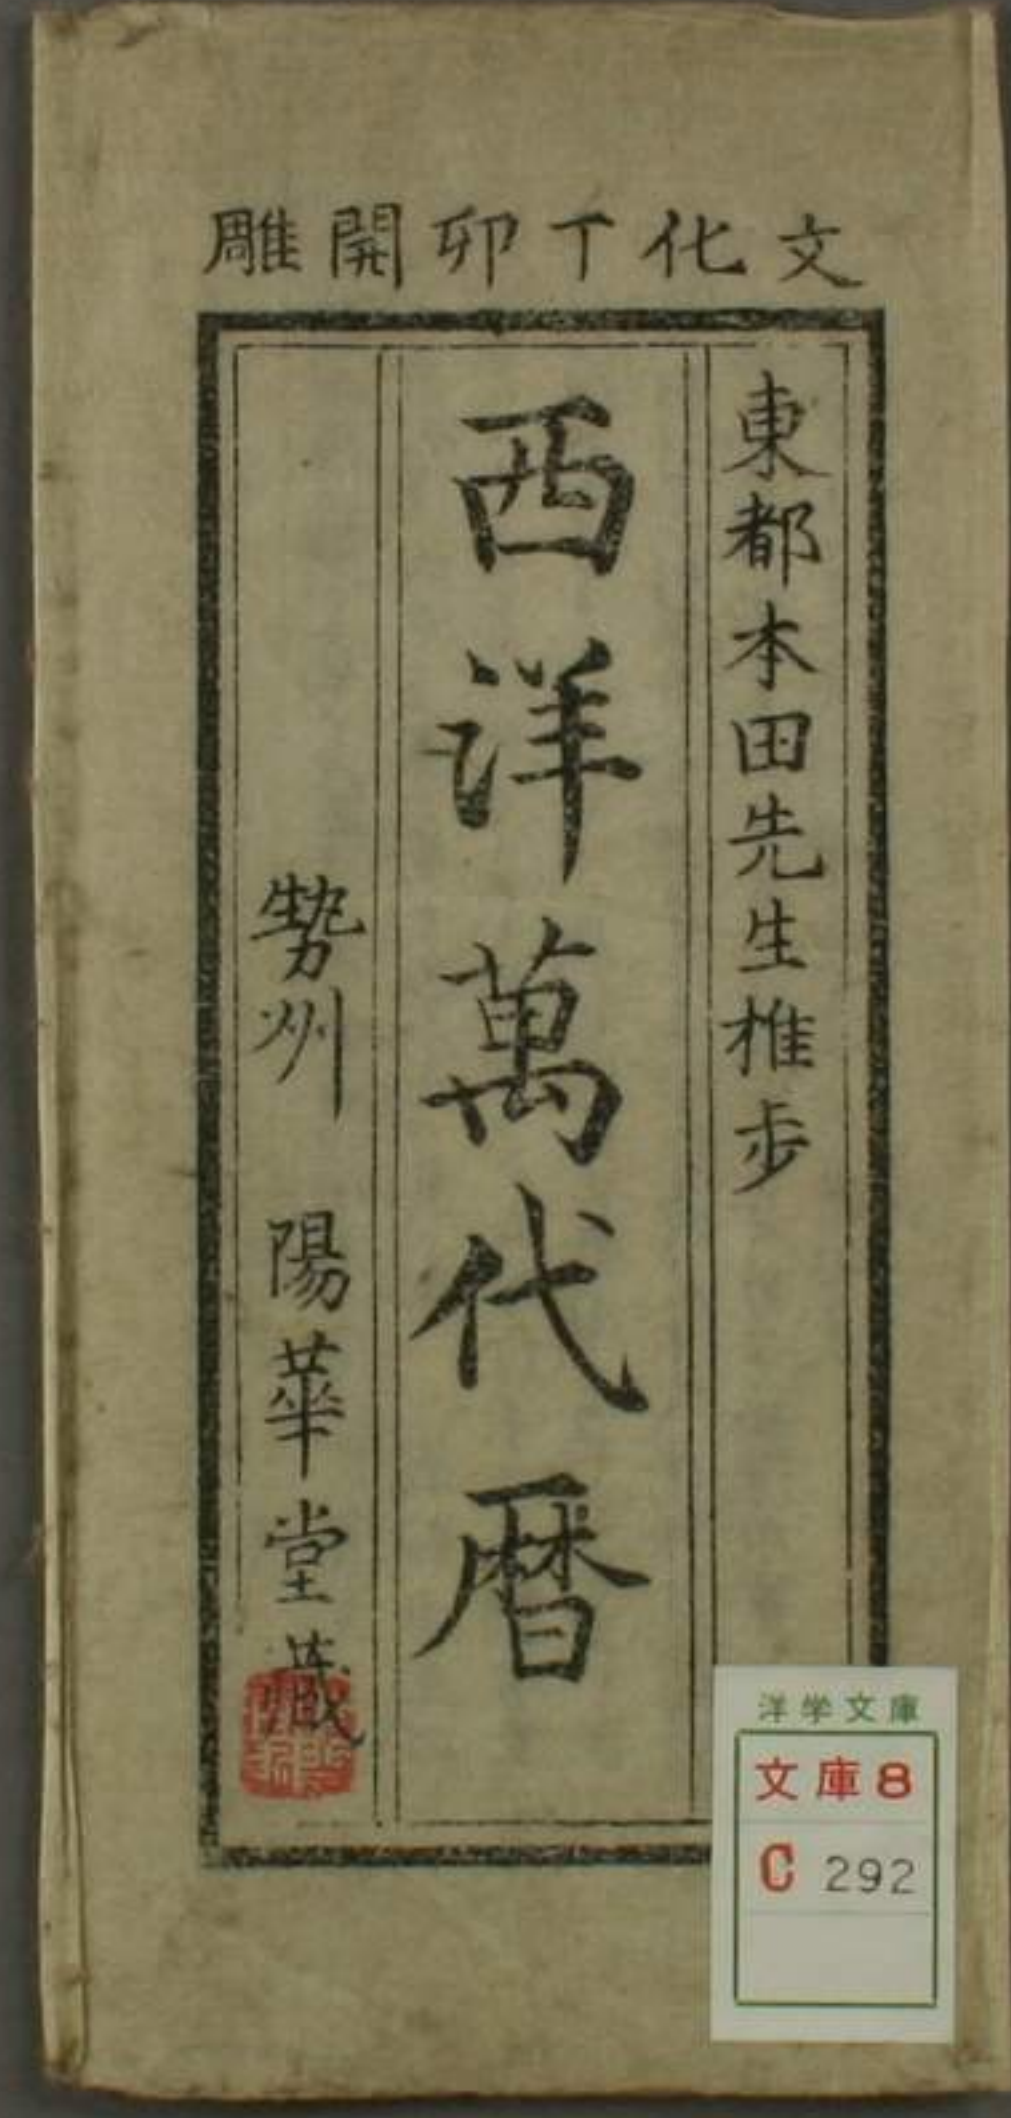 文化丁卯開雕
東都本田先生推步
西洋萬代暦
勢州 陽華堂蔵
洋学文庫
文庫8
C 292